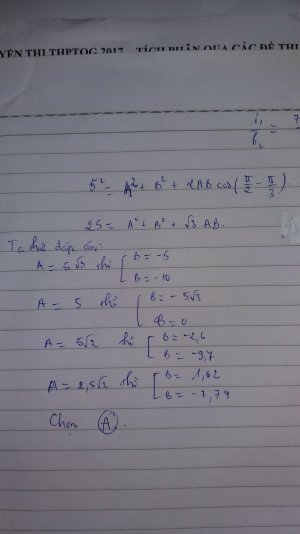 YỆN THI THPTQG 2017 – TÍCH PHÂN QUA CÁC ĐỀ THI
5² = A² + B² + 2AB cos(π/2 − π/3).
25 = A² + B² + √3 AB.
Ta thử đáp án:
A = 5√3 thì [ B = −5
B = −10
A = 5 thì [ B = −5√3
B = 0
A = 5√2 thì [ B = −2,6
B = −9,7
A = 2,5√2 thì [ B = 1,62
B = −7,74
Chọn A.